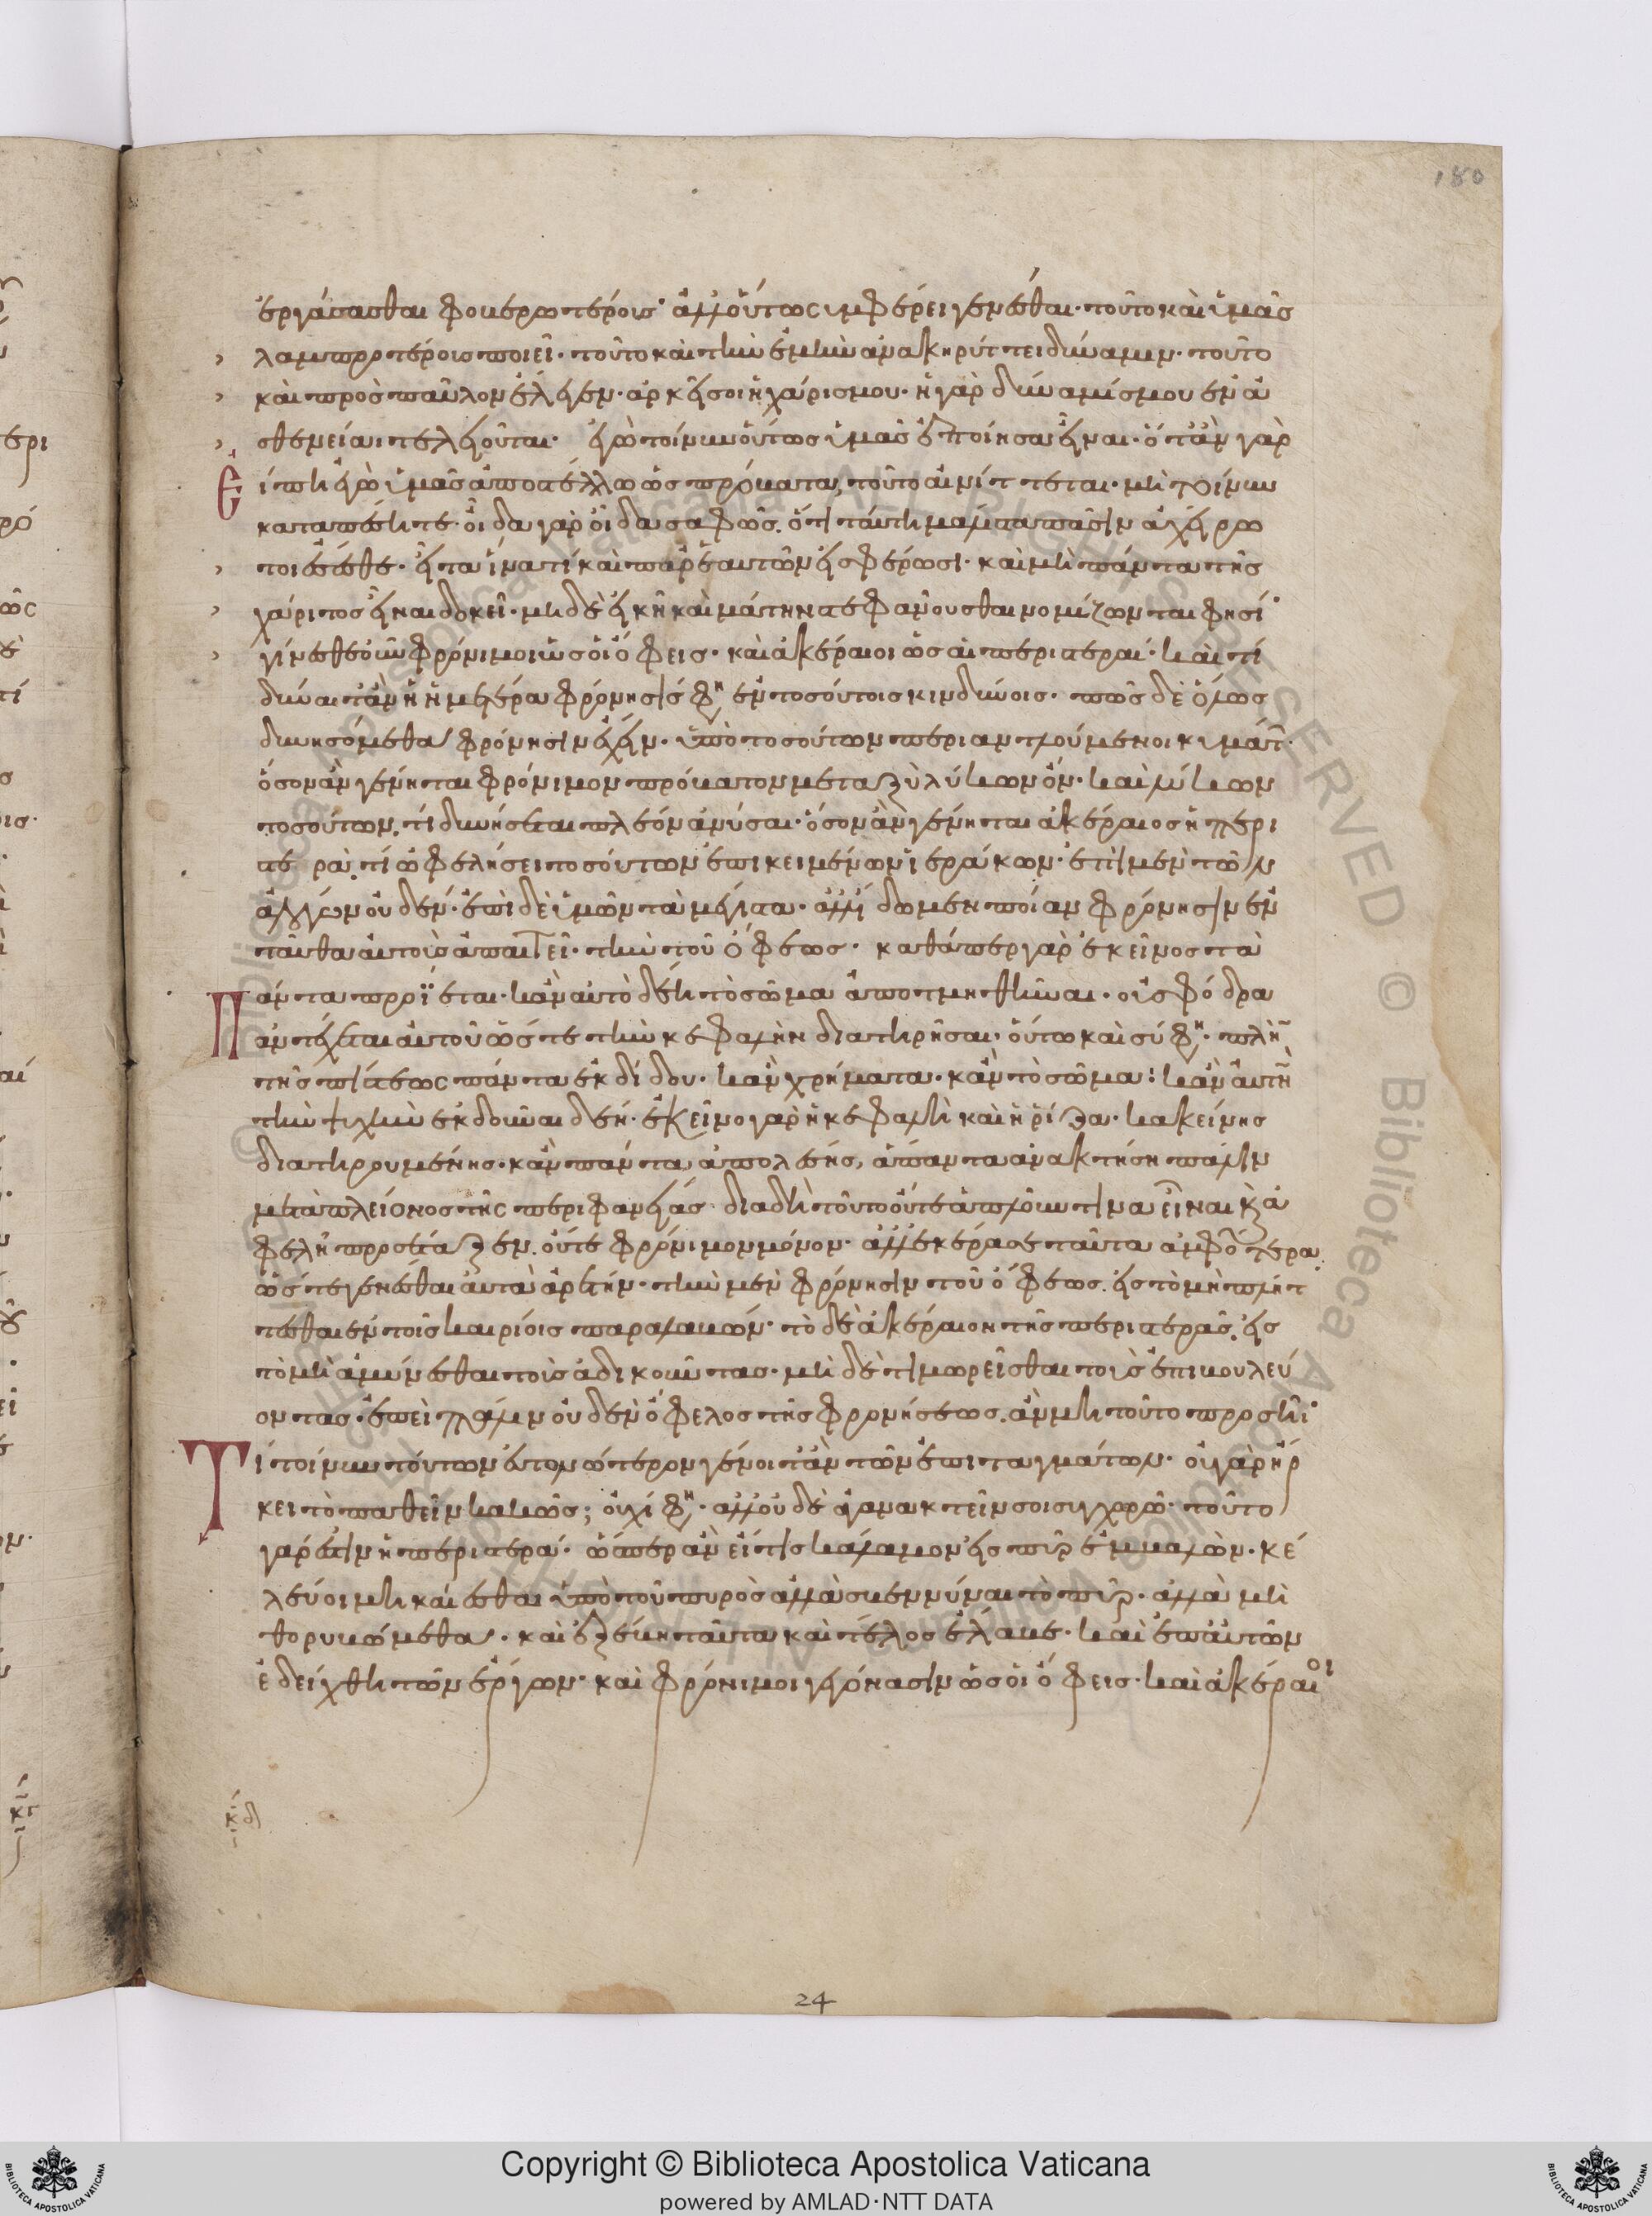 180
ἐργάσασθαι φοβερωτέρους· ἀλλ' οὕτω συμφέρει γενέσθαι· τοῦτο καὶ ὑμᾶς
λαμπροτέρους ποιεῖ· τοῦτο καὶ τὴν ἐμὴν ἀνακηρύττει δύναμιν· τοῦτο
καὶ πρὸς παῦλον ἔλεγεν· ἀρκεῖ σοι ἡ χάρις μου· ἡ γὰρ δύναμίς μου ἐν ἀ
σθενείαι τελειοῦται· ἐγὼ τοίνυν οὕτως ὑμᾶς ἐποίησα εἶναι· ὅταν γὰρ
είπη ἐγὼ ὑμᾶς ἀποστέλλω ὡς πρόβατα, τοῦτο αἰνίττεται· μὴ τοίνυν
καταπέσητε· οἶδα γὰρ οἶδα σαφῶς. ὅτι ταύτη μάλιστα πᾶσιν ἀχείρω
τοι ἔσεσθε· εἶτα ἵνα τί καὶ παρ' ἑαυτῶν εἰσφέρωσι· καὶ μὴ πάντα τῆς
χάριτος εἶναι δοκεῖ· μὴ δὲ εἰκῆ καὶ μάτην στεφανοῦσθαι νομίζωνται φησί·
γίνεσθε οὖν φρόνιμοι ὡς οἱ ὄφεις· καὶ ἀκέραιοι ὡς αἱ περιστεραί· καὶ τί
δύναιτ' ἂν ἡ ἡμετέρα φρόνησις φη ἐν τοσούτοις κινδύνοις· πῶς δὲ ὅλως
δυνησόμεθα φρόνησιν ἔχειν· ὑπὸ τοσούτων περιαντλούμενοι κυμάτ
ὅσον ἂν γένηται φρόνιμον πρόβατον μεταξὺ λύκων ὄν· καὶ λύκων
τοσούτων, τί δυνήσεται πλέον ἀνύσαι· ὅσον ἂν γένηται ἀκέραιος ἡ περι
στερὰ, τί ὠφελήσει τοσούτων ἐπικειμένων ἱεράκων· ἐπὶ μὲν τῶν
ἀλόγων οὐδέν· ἐπὶ δὲ ὑμῶν τὰ μέγιστα· ἀλλ' ἴδωμεν ποίαν φρόνησιν ἐν
ταῦθα αὐτοὺς ἀπαιτεῖ· τὴν τοῦ ὄφεως· καθάπερ γὰρ ἐκεῖνος τὰ
Πάντα προΐεται· κἂν αὐτὸ δέη τὸ σῶμα ἀποτμηθῆναι· οὐ σφόδρα
ἀντέχεται αὐτοῦ ὥστε τὴν κεφαλὴν διατηρῆσαι· οὕτω καὶ σύ φη· πλὴ
τῆς πίστεως πάντα ἐκδίδου· κἂν χρήματα· κἂν τὸ σῶμα· κἂν αὐτὴ
τὴν ψυχὴν ἐκδοῦναι δέη· ἐκεῖνο γὰρ ἡ κεφαλὴ καὶ ἡ ῥίζα· κἀκείνης
διατηρουμένης· κἂν πάντα ἀπολέσης, ἅπαντα ἀνακτήση πάλιν
μετὰ πλείονος τῆς περιφανείας· διαδὴ τοῦτο οὔτε ἁπλοῦν τινα εἶναι κὰ ἀ
φελῆ προσέταξεν. οὔτε φρόνιμον μόνον· ἀλλ' ἐκέρασε ταῦτα ἀμφότερα.
ὥστε γενέσθαι αὐτὰ ἀρετήν· τὴν μὲν φρόνησιν τοῦ ὄφεως. εἰς τὸ μὴ πλήτ
τεσθαι ἐν τοῖς καιρίοις παραλαβών· τὸ δὲ ἀκέραιον τῆς περιστερᾶς. εἰς
τὸ μὴ ἀμύνεσθαι τοὺς ἀδικοῦντας· μὴ δὲ τιμωρεῖσθαι τοὺς ἐπιβουλεύ
οντας· ἐπεὶ πάλιν οὐδὲν ὄφελος τῆς φρονήσεως. ἂν μὴ τοῦτο προσῆι·
Τί τοίνυν τούτων ἐπιτονώτερον γένοιτ' ἂν τῶν ἐπιταγμάτων· οὐ γὰρ ἤρ
κει τὸ παθεῖν κακῶς; οὐχί φη· ἀλλ' οὐδὲ ἀγανακτεῖν σοι συγχωρῶ· τοῦτο
γάρ ἐστιν ἡ περιστερά· ὥσπερ ἂν εἴ τις κάλαμον εἰς πῦρ ἐμβαλὼν· κε
λεύοι μὴ καίεσθαι ὑπὸ τοῦ πυρὸς ἀλλὰ σβεννύναι τὸ πῦρ· ἀλλὰ μὴ
θορυβώμεθα· καὶ ἐξέβη ταῦτα καὶ τέλος ἔλαβε· καὶ ἐπ' αὐτῶν
ἐδείχθη τῶν ἔργων· καὶ φρόνιμοι γεγόνασιν ὡς οἱ ὄφεις· καὶ ἀκέραιοι
κδ
24
Copyright © Biblioteca Apostolica Vaticana
powered by AMLAD·NTT DATA